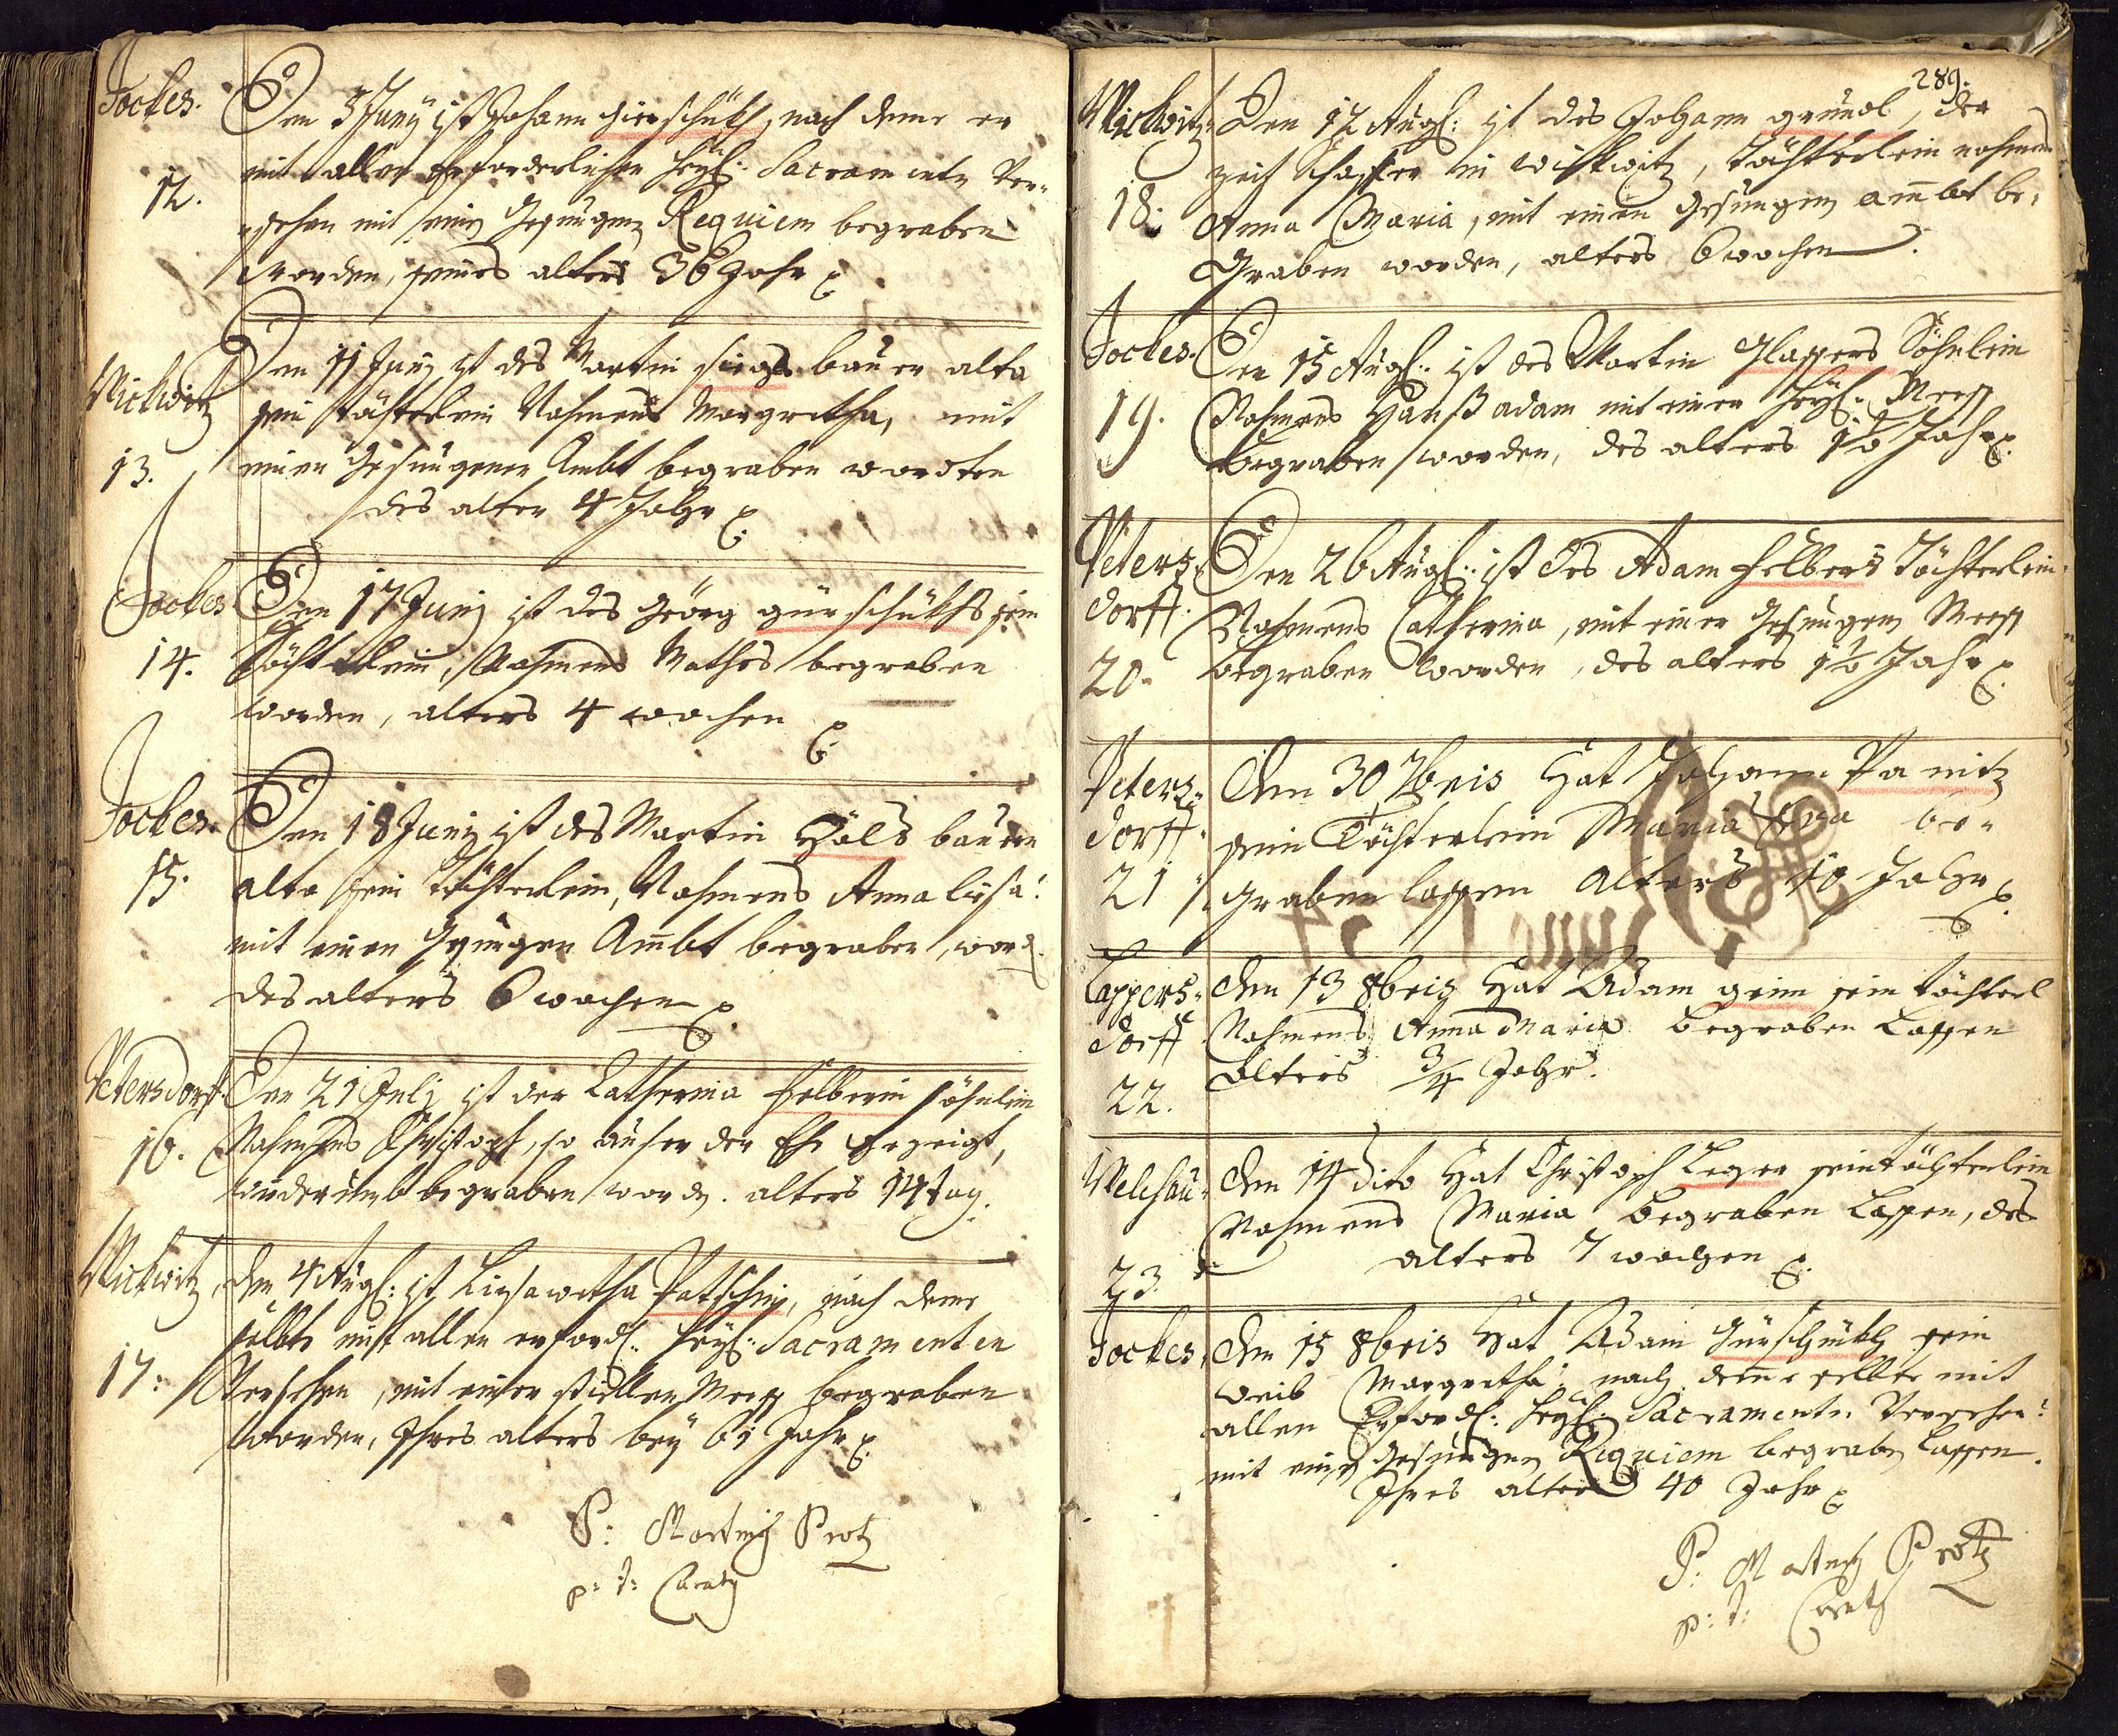 Jockes.
12.
Den 5 Juny ist Johann gierschükh, nach deme er
mit allen erforderlichen heyl: Sacramentn Ver-
sehen mit einen gesungen Requiem begraben
worden, seines alters 36 Jahr
Wickwitz
13.
Den 11 Juny ist des Martin bauer alta
sein töchterlein Nahmens Margretha, mit
einen gesungenen Ambt begraben worden
des alter 4 Jahr
Jockes
14.
Den 17 Junj ist des Geörg gürschükhs sein
Söchterlein, Nahmens Mathes begraben
worden, alters 4 wochen
Jockes.
15.
Den 18 Junj ist des Martin Häls bauern
alta sein töchterlein, Nahmens Anna lisa:
mit einen gesungen Ambt begraben, word.
des alters 6 wochen
Petersdorff.
16.
Den 21 Julj ist der Catherina Felberin söhnlein
Nahmens Christoph, so auser der Ehe gezeigt,
widerumb begraben word. alters 14 tag.
Wickwitz,
17:
den 4 Augl: ist Liesawetha Patschin, nach deme
selbte mit allen erfordl: heyl: Sacramenten
Versehen, mit einer stillen Mess begraben
worden, Ihres alters bey 61 Jahr
P: Martin Protz
p: t: Curatg
289.
Wickwitz.
18.
Den 12 Augl: ist des Johann gründl, der
zeit Schaffer in wickwitz, töchterlein nahmen
Anna Maria, mit einen gesungen ambt be-
Graben worden, alters 6 wochen.
Jockes.
19.
Den 15 Augl: ist des Martin Glassers Söhnlein
Nahmens Hanß adam mit einer heyl: Mess
begraben worden, des alters 1½ Jahr.
Peters-
dorff.
20.
Den 26 Augl: ist des Adam Felbers Töchterlein
Nahmens Catherina, mit einer gesungen Mess
begraben worden, des alters 1½ Jahr
Peters-
dorff.
21
Den 30 7bris Hat Johann Panitz
sein Töchterlein Maria be-
graben lassen Alters 10 Jahr
Lappers-
dorff
22.
Den 13 8bris Hat Adam grim sein töchterl
Nahmens Anna Maria begraben Lassen
Alters 3/4 Jahr.
Welchau.
23.
Den 14 dito Hat Christoph Leger sein töchterlein
Nahmens Maria begraben Lassen, des
alters 7 wochen
Jockes,
Den 15 8bris Hat Adam Gürschükh sein
weib Margretha: nach deme selbte mit
allen Erfordl: heyl: Sacramentn Versehen:
mit einen gesungen Requiem begraben lassen.
Ihres alters 40 Jahr
P: Martin Protz
p: t: Curatg